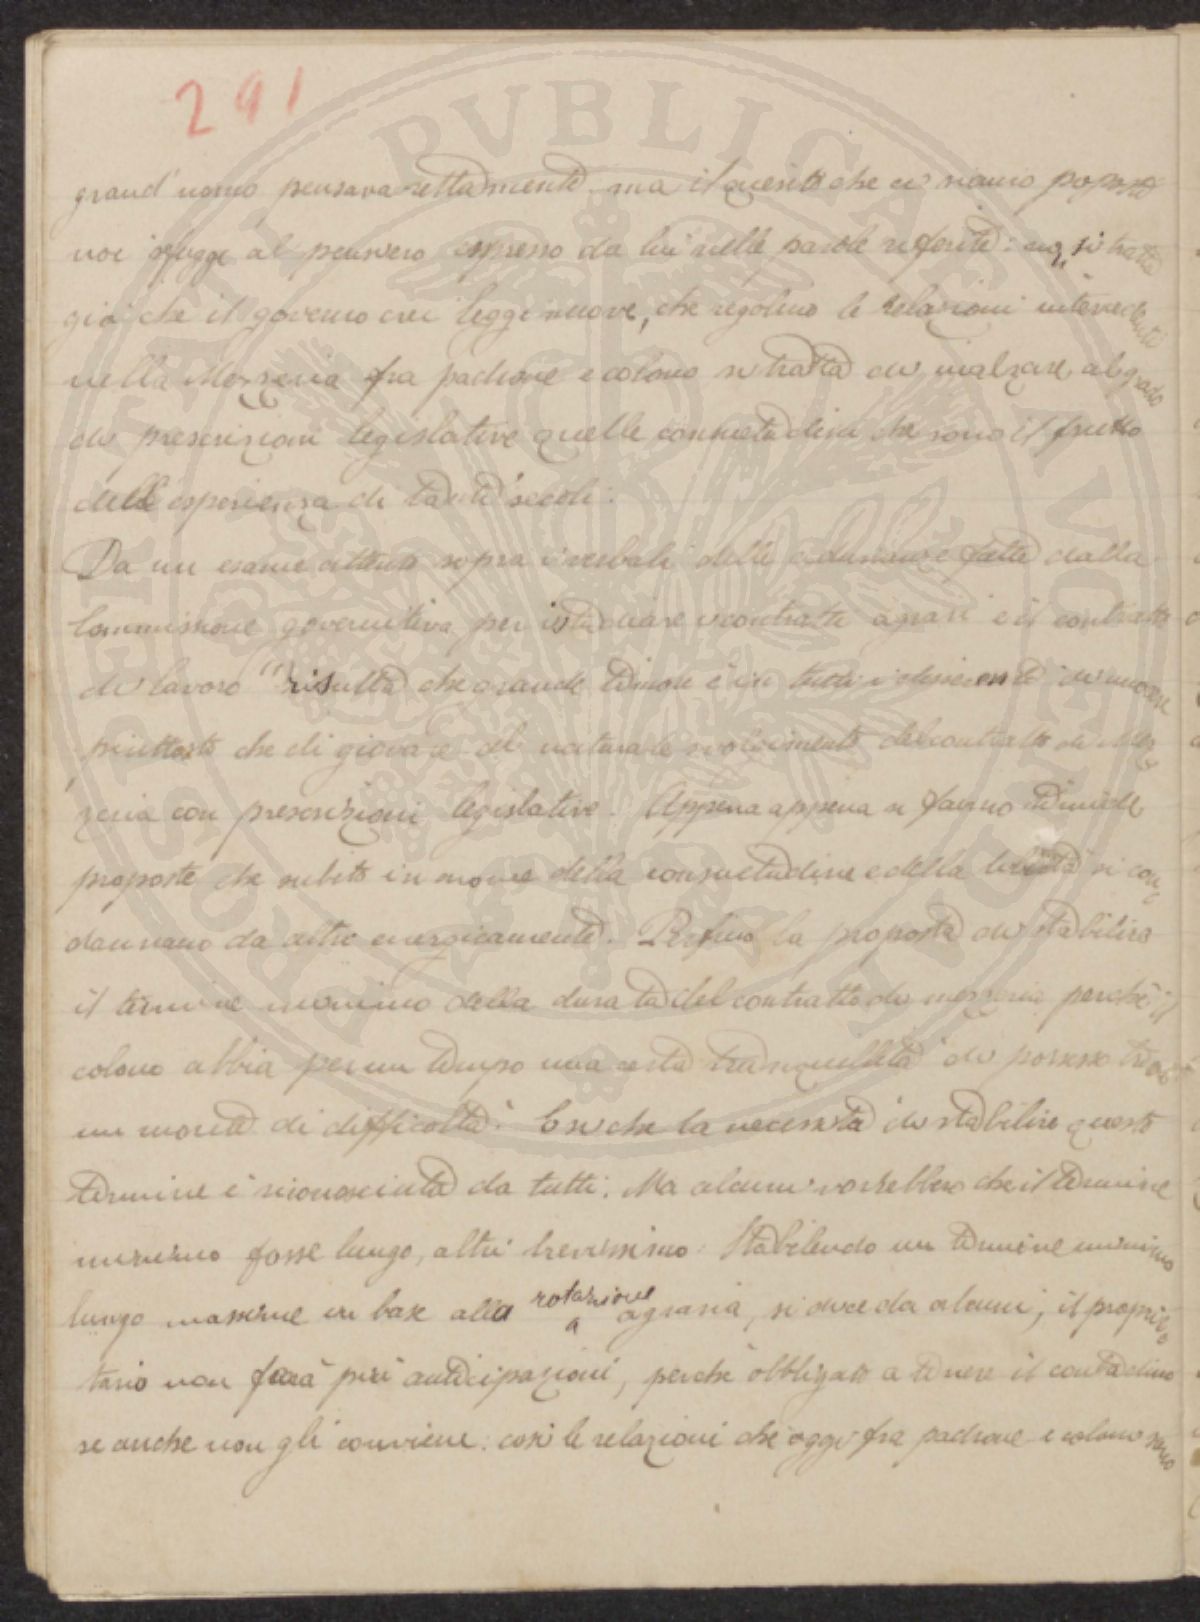 291
grand'uomo pensava rettamente ma il quesito che ci siamo poposto
noi sfugge al pensiero espresso da lui nelle parole riferite: non si tratta
già che il governo crei leggi nuove, che regolino le relazioni intercedenti
nella Mezzeria fra padrone e colono si tratta di inalzare al grado
di prescrizioni legislative quelle consuetudini che sono il frutto
dell'esperienza di tanti secoli.
Da un esame attento sopra i verbali delle adunanze fatte dalla
Commissione governitiva per istudiare i contratti agrari e il contratto
di lavoro" risulta che grande timore è in tutti i di nuocere
piuttosto che di giovare al naturale svolgimento del contratto di Mez
zeria con prescrizioni legislative. Appena appena si fanno timide
proposte che subito in nome della consuetudine e della libertà si con
dannano da altri energicamente. Perfino la proposta di stabilire
il termine minimo della durata del contratto di mezzeria perchè il
colono abbia per un tempo una certa tranquillità di possesso trova
un monte di difficoltà. Ensche la necessità di stabilire questo
termine è riconosciuta da tutti. Ma alcuni vorrebbero che il termine
minimo fosse lungo, altri brevissimo. Stabilendo un termine minimo
lungo massime in base alla rotazione agraria, si dice da alcuni, il proprie
tario non farà più anticipazioni, perchè obbligato a tenere il contadino
se anche non gli conviene: così le relazioni che oggi fra padrone e colono sono